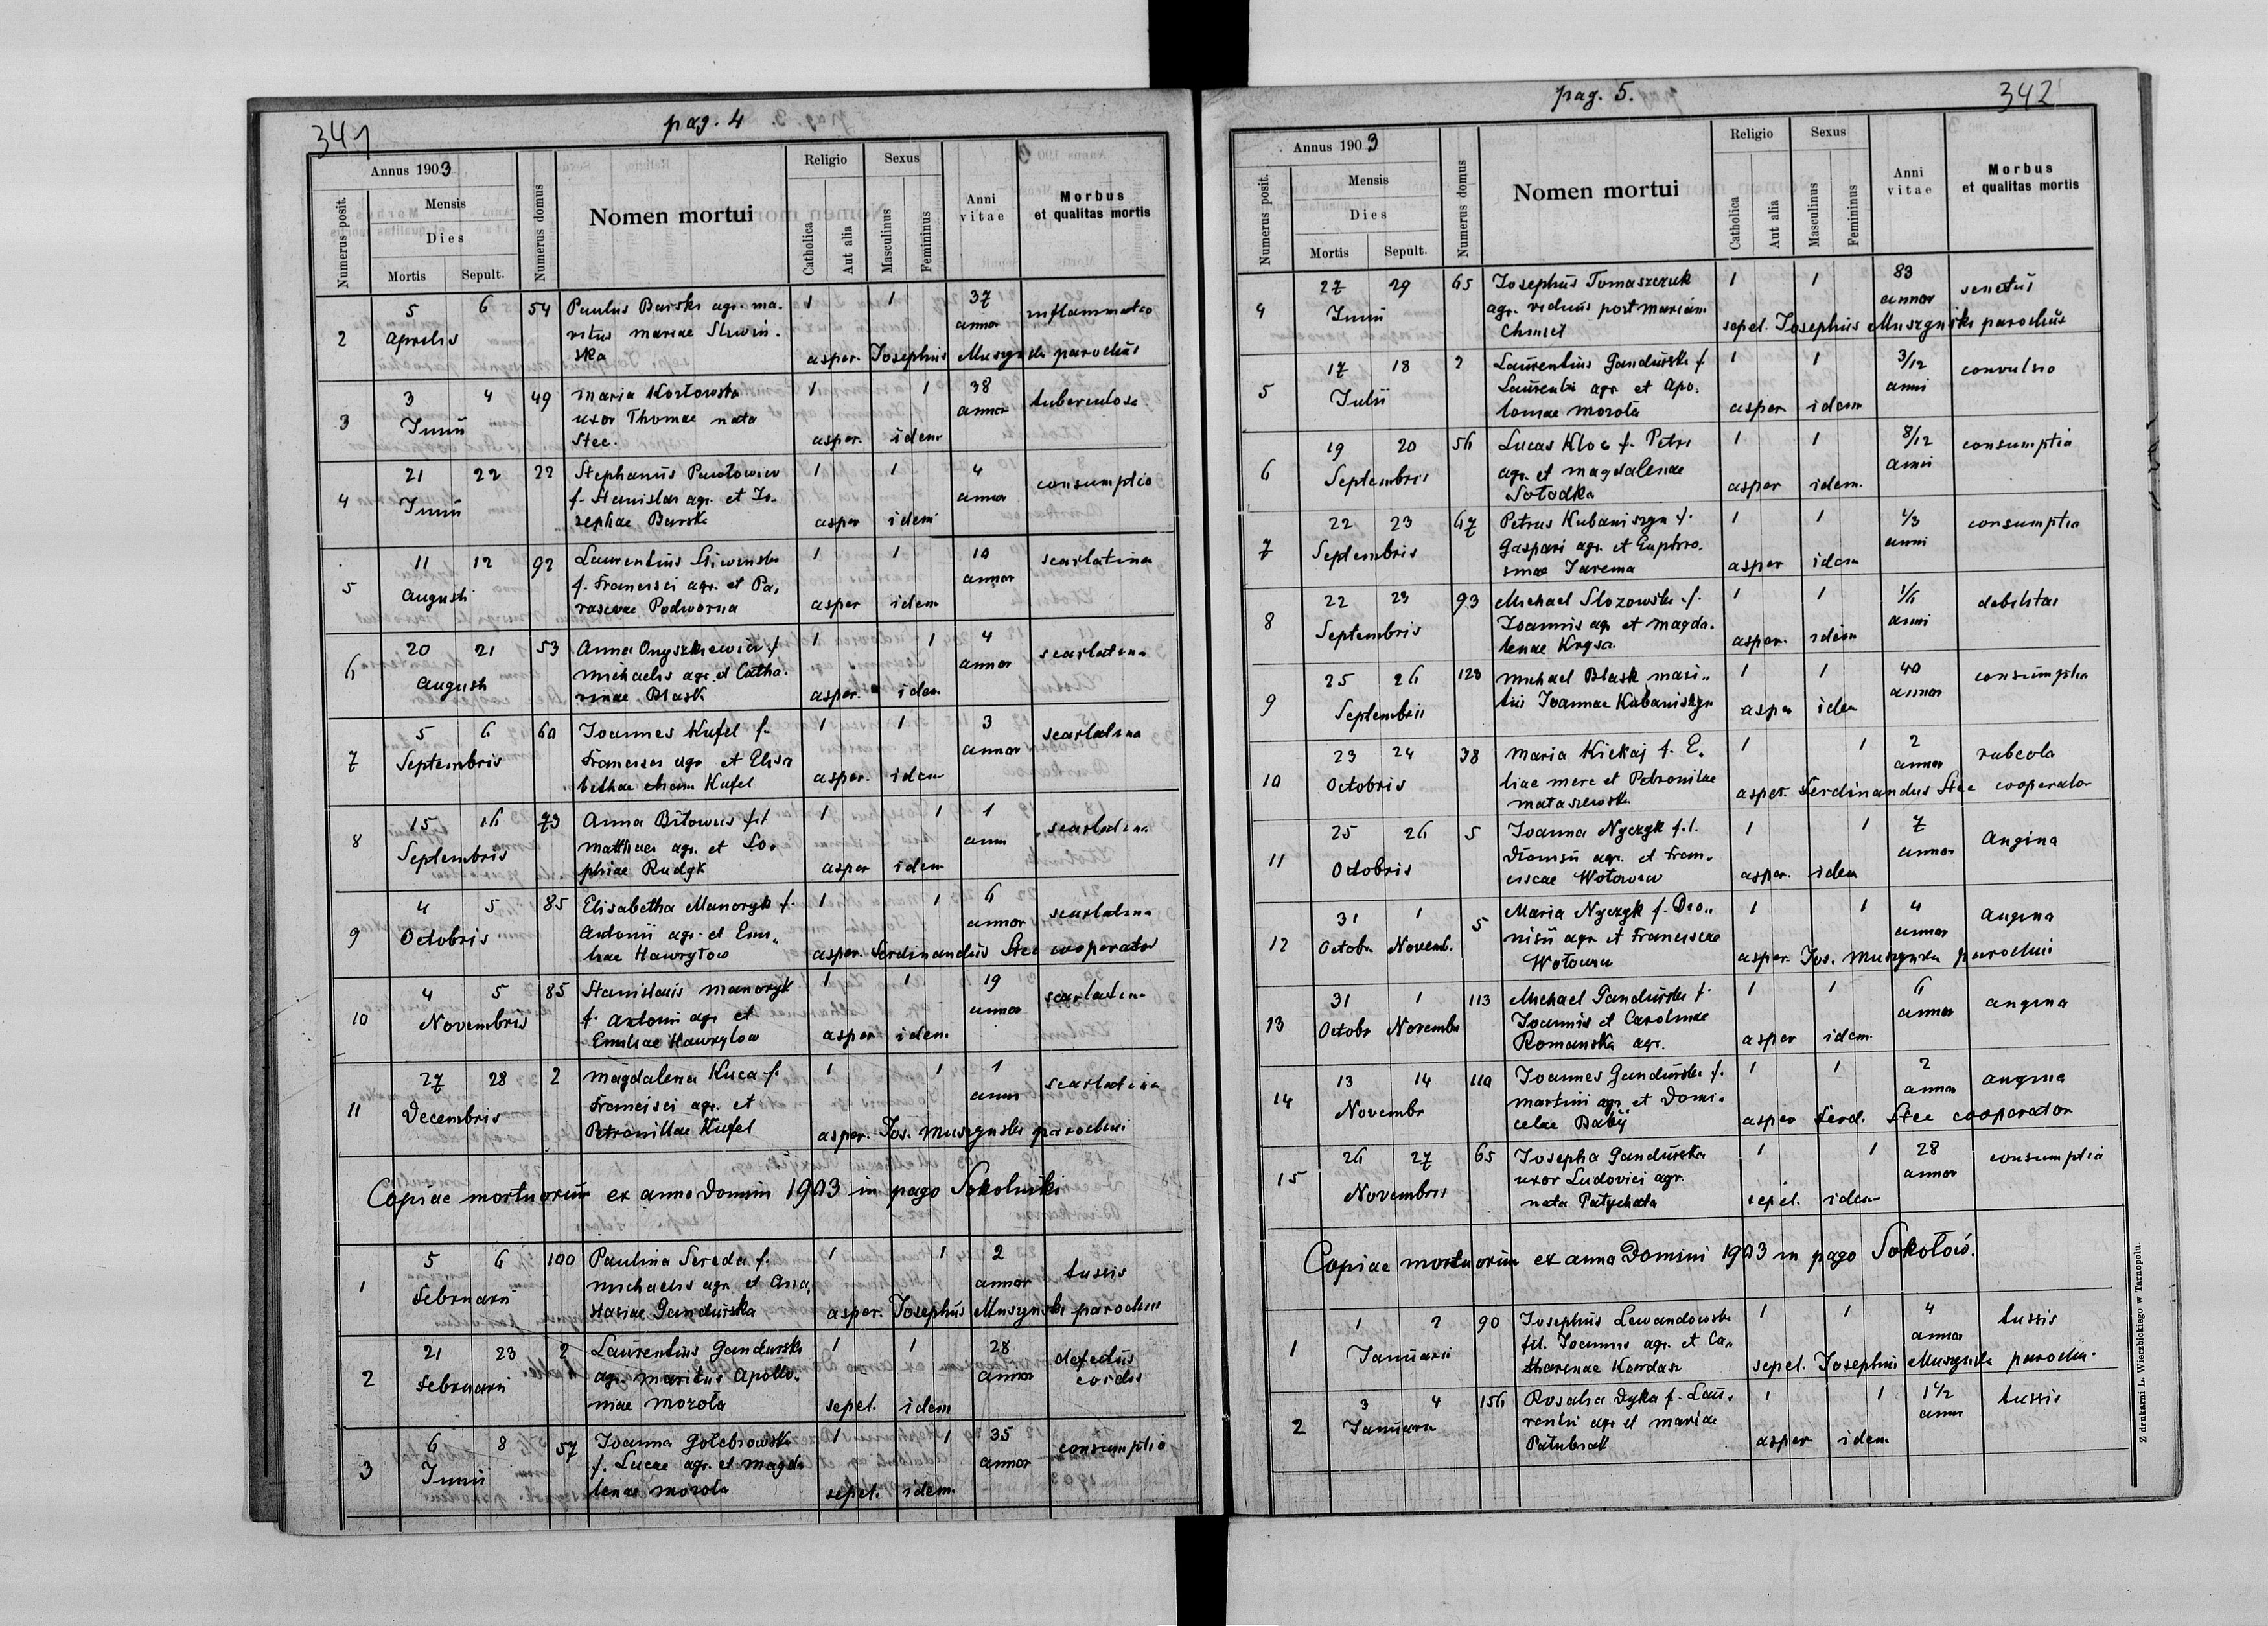 341
pag. 4
Annus 1903
Numerus posit.
Mensis
Dies
Mortis
Sepult.
Numerus domus
Nomen mortui
Religio
Catholica
Aut alia
Sexus
Masculinus
Femininus
Anni vitae
Morbus et qualitas mortis
2 5 6 54 Paulus Barski agr. ma- 1 1 37 inflammatio
Aprilis ritus Mariae Sliwin- annor
ska asper. Josephus Muszynski parochus
3 3 4 49 Maria Kozłowska 1 1 38 tuberculosa
Junii uxor Thomae nata annor
Stec. asper. idem
4 21 22 22 Stephanus Pawłowicz 1 1 4 consumptio
Junii f. Stanislai agr. et Jo- annor
sephae Barski asper idem
5 11 12 92 Laurentius Sliwinski 1 1 10 scarlatina
Augusti f. Francisci agr. et Pa- annor
rascevae Podworna asper idem
6 20 21 53 Anna Onyszkiewicz f. 1 1 4 scarlatina
Augusti Michaelis agr. et Catha- annor
rinae Błask asper. idem
7 5 6 60 Joannes Kufel f. 1 1 3 scarlatina
Septembris Francisci agr. et Elisa annor
bethae etiam Kufel asper. idem
8 15 16 73 Anna Bitowus fil 1 1 1 scarlatina
Septembris Matthaei agr. et So- anni
phiae Rudyk asper idem
9 4 5 85 Elisabetha Manoryk f. 1 1 6 scarlatina
Octobris Antonii agr. et Emi- annor
liae Hawryłow asper. Ferdinandus Stec cooperator
10 4 5 85 Stanislaus Manoryk 1 1 19 scarlatina
Novembris f. Antonii agr. et annor
Emiliae Hawrylow asper idem
11 27 28 2 Magdalena Kuca f. 1 1 1 scarlatina
Decembris Francisci agr. et anni
Petronillae Kufel asper. Jos. Muszynski parochus
Copiae mortuorum ex anno Domini 1903 in pago Sokolniki
1 5 6 100 Paulina Sereda f. 1 1 2 tussis
Februarii Michaelis agr. et Ana- annor
stasiae Gandurska asper. Josephus Muszynski parochus
2 21 23 2 Laurentius Gandurski 1 1 28 defectus
Februarii agr. maritus Apollo- annor cordis
niae Morota sepel. idem
3 6 8 57 Joanna Gołebiowska 1 1 35 consumptio
Junii f. Lucae agr. et Magda annor
lenae Morota sepel. idem.
pag. 5.
342
Annus 1903
Numerus posit.
Mensis
Dies
Mortis
Sepult.
Numerus domus
Nomen mortui
Religio
Catholica
Aut alia
Sexus
Masculinus
Femininus
Anni vitae
Morbus et qualitas mortis
4 27 29 65 Josephus Tomaszczuk 1 1 83 senectus
Junii agr. viduus post Mariam annor
Chmiel sepel. Josephus Muszynski parochus
5 17 18 2 Laurentius Gandurski f 1 1 3/12 convulsio
Julii Laurentii agr. et Apo- anni
loniae Morota asper idem
6 19 20 56 Lucas Kloc f. Petri 1 1 8/12 consumptio
Septembris agr. et Magdalenae anni
Sołodka asper idem.
7 22 23 67 Petrus Kubaniszyn f. 1 1 1/3 consumptio
Septembris Gaspari agr. et Euphro- anni
sinae Jarema asper idem
8 22 23 93 Michael Slozowski f. 1 1 1/6 debilitas
Septembris Joannis agr et Magda- anni
lenae Krysa asper. idem
9 25 26 123 Michael Błask mari- 1 1 40 consumptio
Septembris tus Joannae Kubaniszyn asper idem annor
10 23 24 38 Maria Kickaj f. E- 1 1 2 rubeola
Octobris liae merc et Petronilae annor
Mataszewska asper. Ferdinandus Stec cooperator
11 25 26 5 Joanna Nyczyk f.l. 1 1 7 Angina
Octobris Dionisii agr. et Fran- annor
ciscae Wołowicz asper. idem
12 31 1 5 Maria Nyczyk f. Dio- 1 1 4 angina
Octobr. Novemb. nisii agr et Franciscae annor
Wołowicz asper. Jos. Muszynski parochus
13 31 1 113 Michael Gandurski f. 1 1 6 angina
Octobr Novembr Joannis et Carolinae annor
Romanska agr. asper idem
14 13 14 110 Joannes Gandurski f. 1 1 2 angina
Novembr Martini agr et Domi- annor
celae Babij asper Ferd. Stec cooperator
15 26 27 65 Josepha Gandurska 1 1 28 consumptio
Novembris uxor Ludovici agr. annor
nata Patychata sepel. idem
Copiae mortuorum ex anno Domini 1903 in pago Sokołow.
1 1 2 90 Josephus Lewandowski 1 1 4 tussis
Januarii fil. Joannis agr. et Ca- annor
tharinae Kardasz sepel. Josephus Muszynski paroch.
2 3 4 156 Rosalia Dyka f. Lau- 1 1 1 1/2 tussis
Januarii rentii agr et Mariae anni
Patubiak asper idem
Z drukarni L. Wierzbickiego w Tarnopolu.